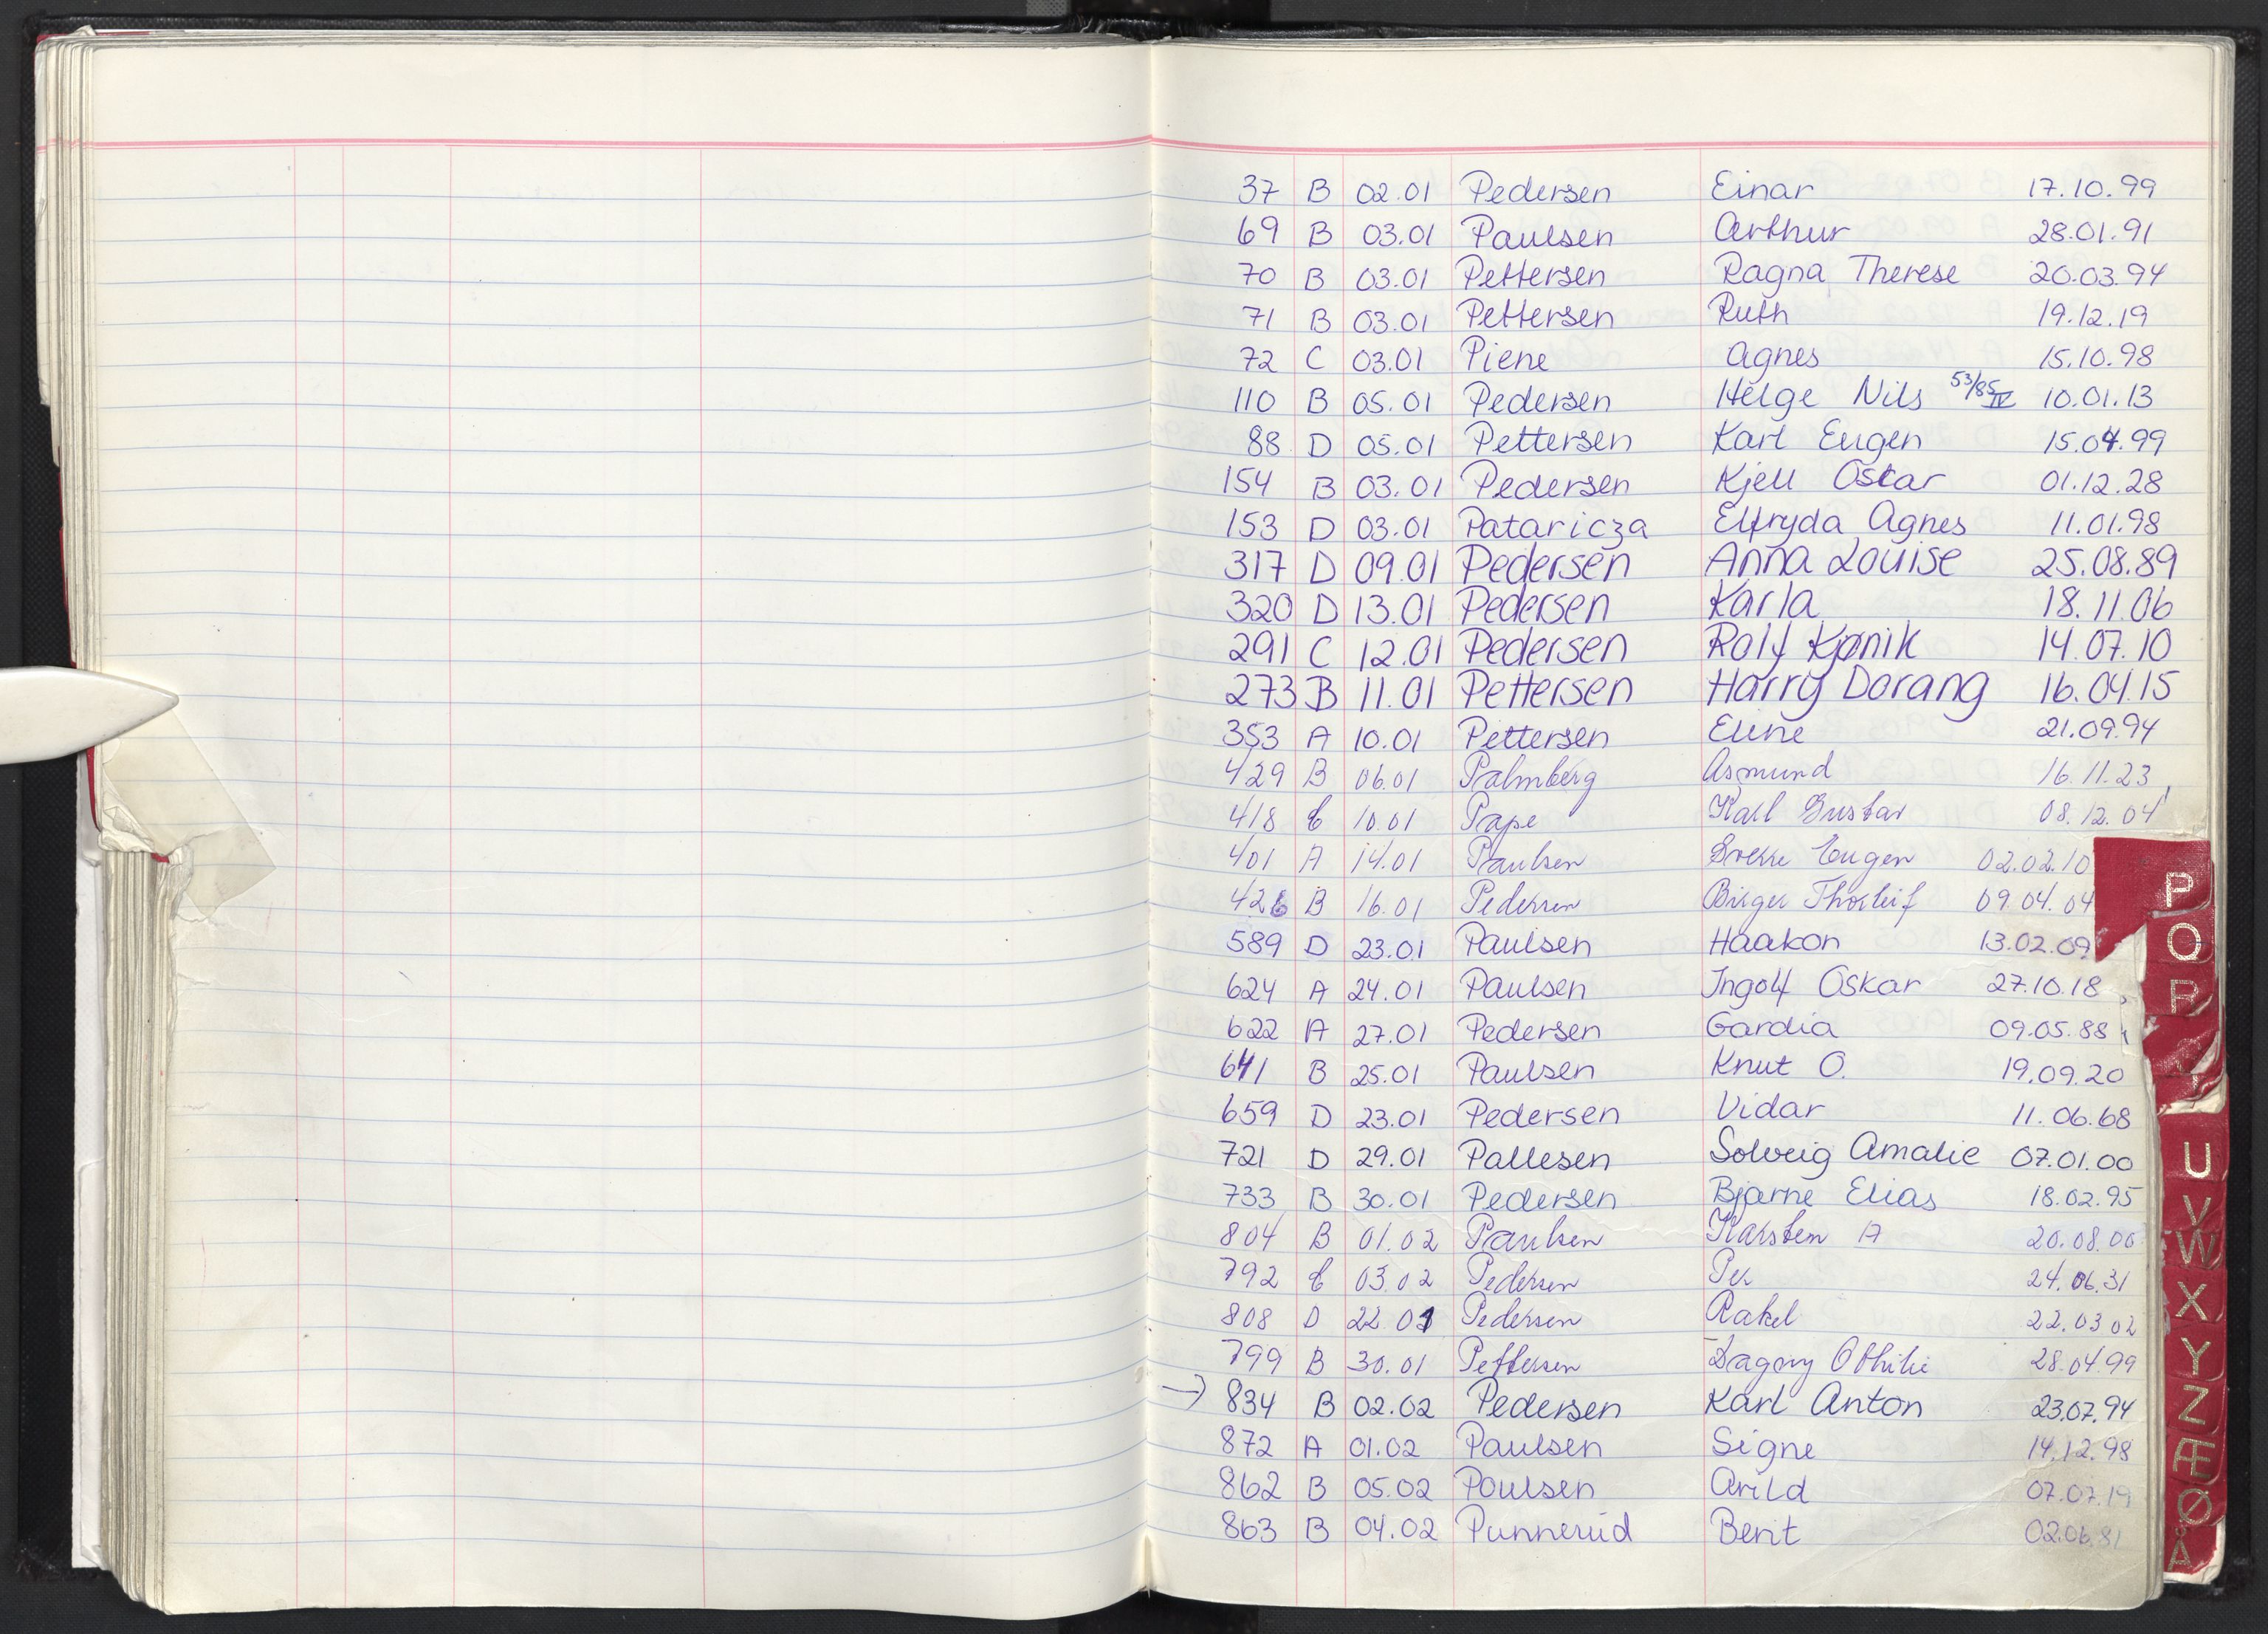 37 B 02.01 Pedersen Einar 17.10.99
69 B 03.01 Paulsen Arthur 28.01.91
70 B 03.01 Pettersen Ragna Therese 20.03.94
71 B 03.01 Pettersen Ruth 19.12.19
72 C 03.01 Piene Agnes 15.10.98
110 B 05.01 Pedersen Helge Nils 53/85 IV 10.01.13
88 D 05.01 Pettersen Karl Eugen 15.04.99
154 B 03.01 Pedersen Kjell Oskar 01.12.28
153 D 03.01 Pataricza Elfryda Agnes 11.01.98
317 D 09.01 Pedersen Anna Louise 25.08.89
320 D 13.01 Pedersen Karla 18.11.06
291 C 12.01 Pedersen Rolf Kjønik 14.07.10
273 B 11.01 Pettersen Harry Dorang 16.04.15
353 A 10.01 Pettersen Eline 21.09.94
429 B 06.01 Palmberg Asmund 16.11.23
418 C 10.01 Pape Karl Gustav 08.12.04
401 A 14.01 Paulsen Sverre Eugen 02.02.10
426 B 16.01 Pedersen Birger Thorleif 09.04.04
589 D 23.01 Paulsen Haakon 13.02.09
624 A 24.01 Paulsen Ingolf Oskar 27.10.18
622 A 27.01 Pedersen Gardia 09.05.88
641 B 25.01 Paulsen Knut O. 19.09.20
659 D 23.01 Pedersen Vidar 11.06.68
721 D 29.01 Pallesen Solveig Amalie 07.01.00
733 B 30.01 Pedersen Bjarne Elias 18.02.95
804 B 01.02 Paulsen Karsten A 20.08.00
792 C 03.02 Pedersen Per 24.06.31
808 D 22.01 Pedersen Rakel 22.03.02
799 B 30.01 Pettersen Dagny Othilie 28.04.99
→ 834 B 02.02 Pedersen Karl Anton 23.07.94
872 A 01.02 Paulsen Signe 14.12.98
862 B 05.02 Poulsen Arild 07.07.19
863 B 04.02 Punnerud Berit 02.06.81
P
Q
R
U
V
W
X
Y
Z
Æ
Ø
Å